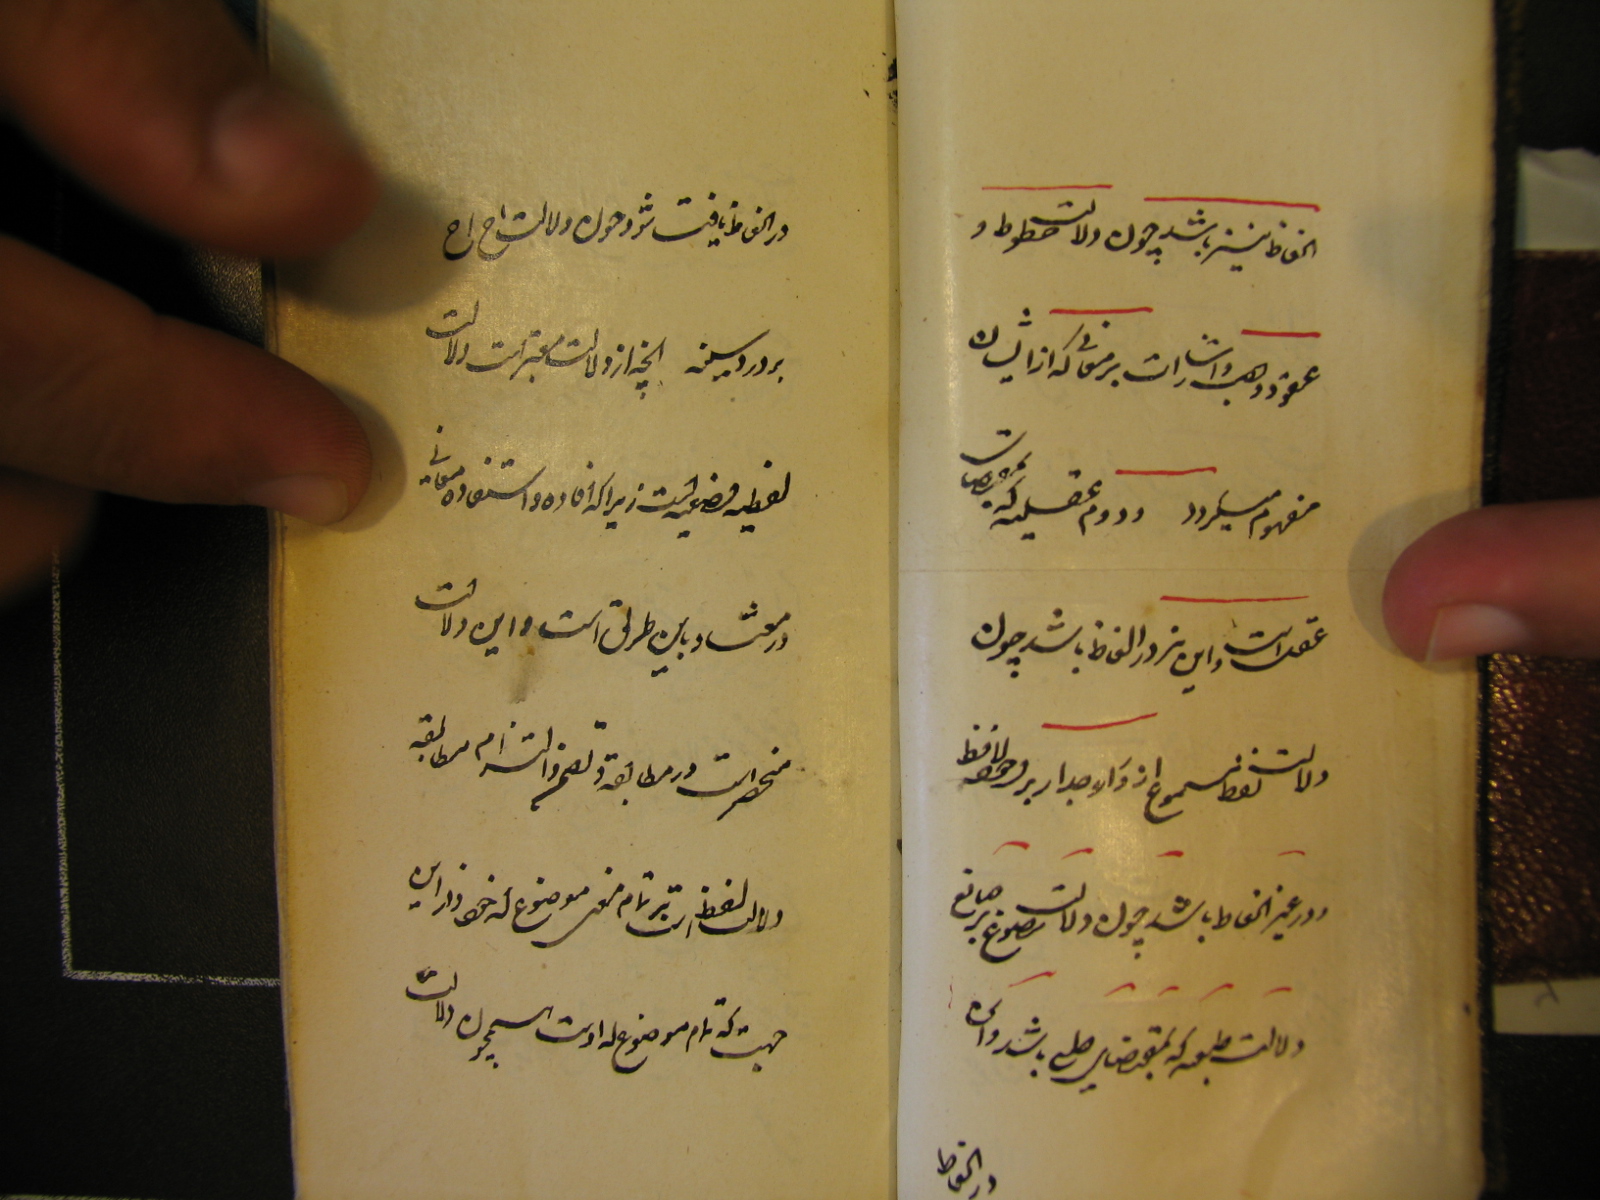 الفاظ نیز باشد چون دلالت خطوط و
عقود و هب و اشارات بر معانی که از ایشان
مفهوم میگردد و دوم عقلیه که بمقتضای
عقل است و این نیز در الفاظ باشد چون
دلالت لفظ مسموع از وراء جدار بر وجود لافظ
و در غیر الفاظ باشد چون دلالت مصنوع بر صانع
دلالت طبعیه که بمقتضای طبع باشد و آن
در الفاظ
در الفاظ یافت شود چون دلالت اح اح
بر درد سینه آنچه از دلالت معتبر است دلالت
لفظیه وضعیه است زیرا که افاده و استفاده معانی
در معتاد باین طریق است و این دلالت
منحصر است در مطابقة و تضمن و التزام مطابقه
دلالت لفظ است بر تمام معنی موضوع له خود از این
جهت که تمام موضوع له اوست همچون دلالت